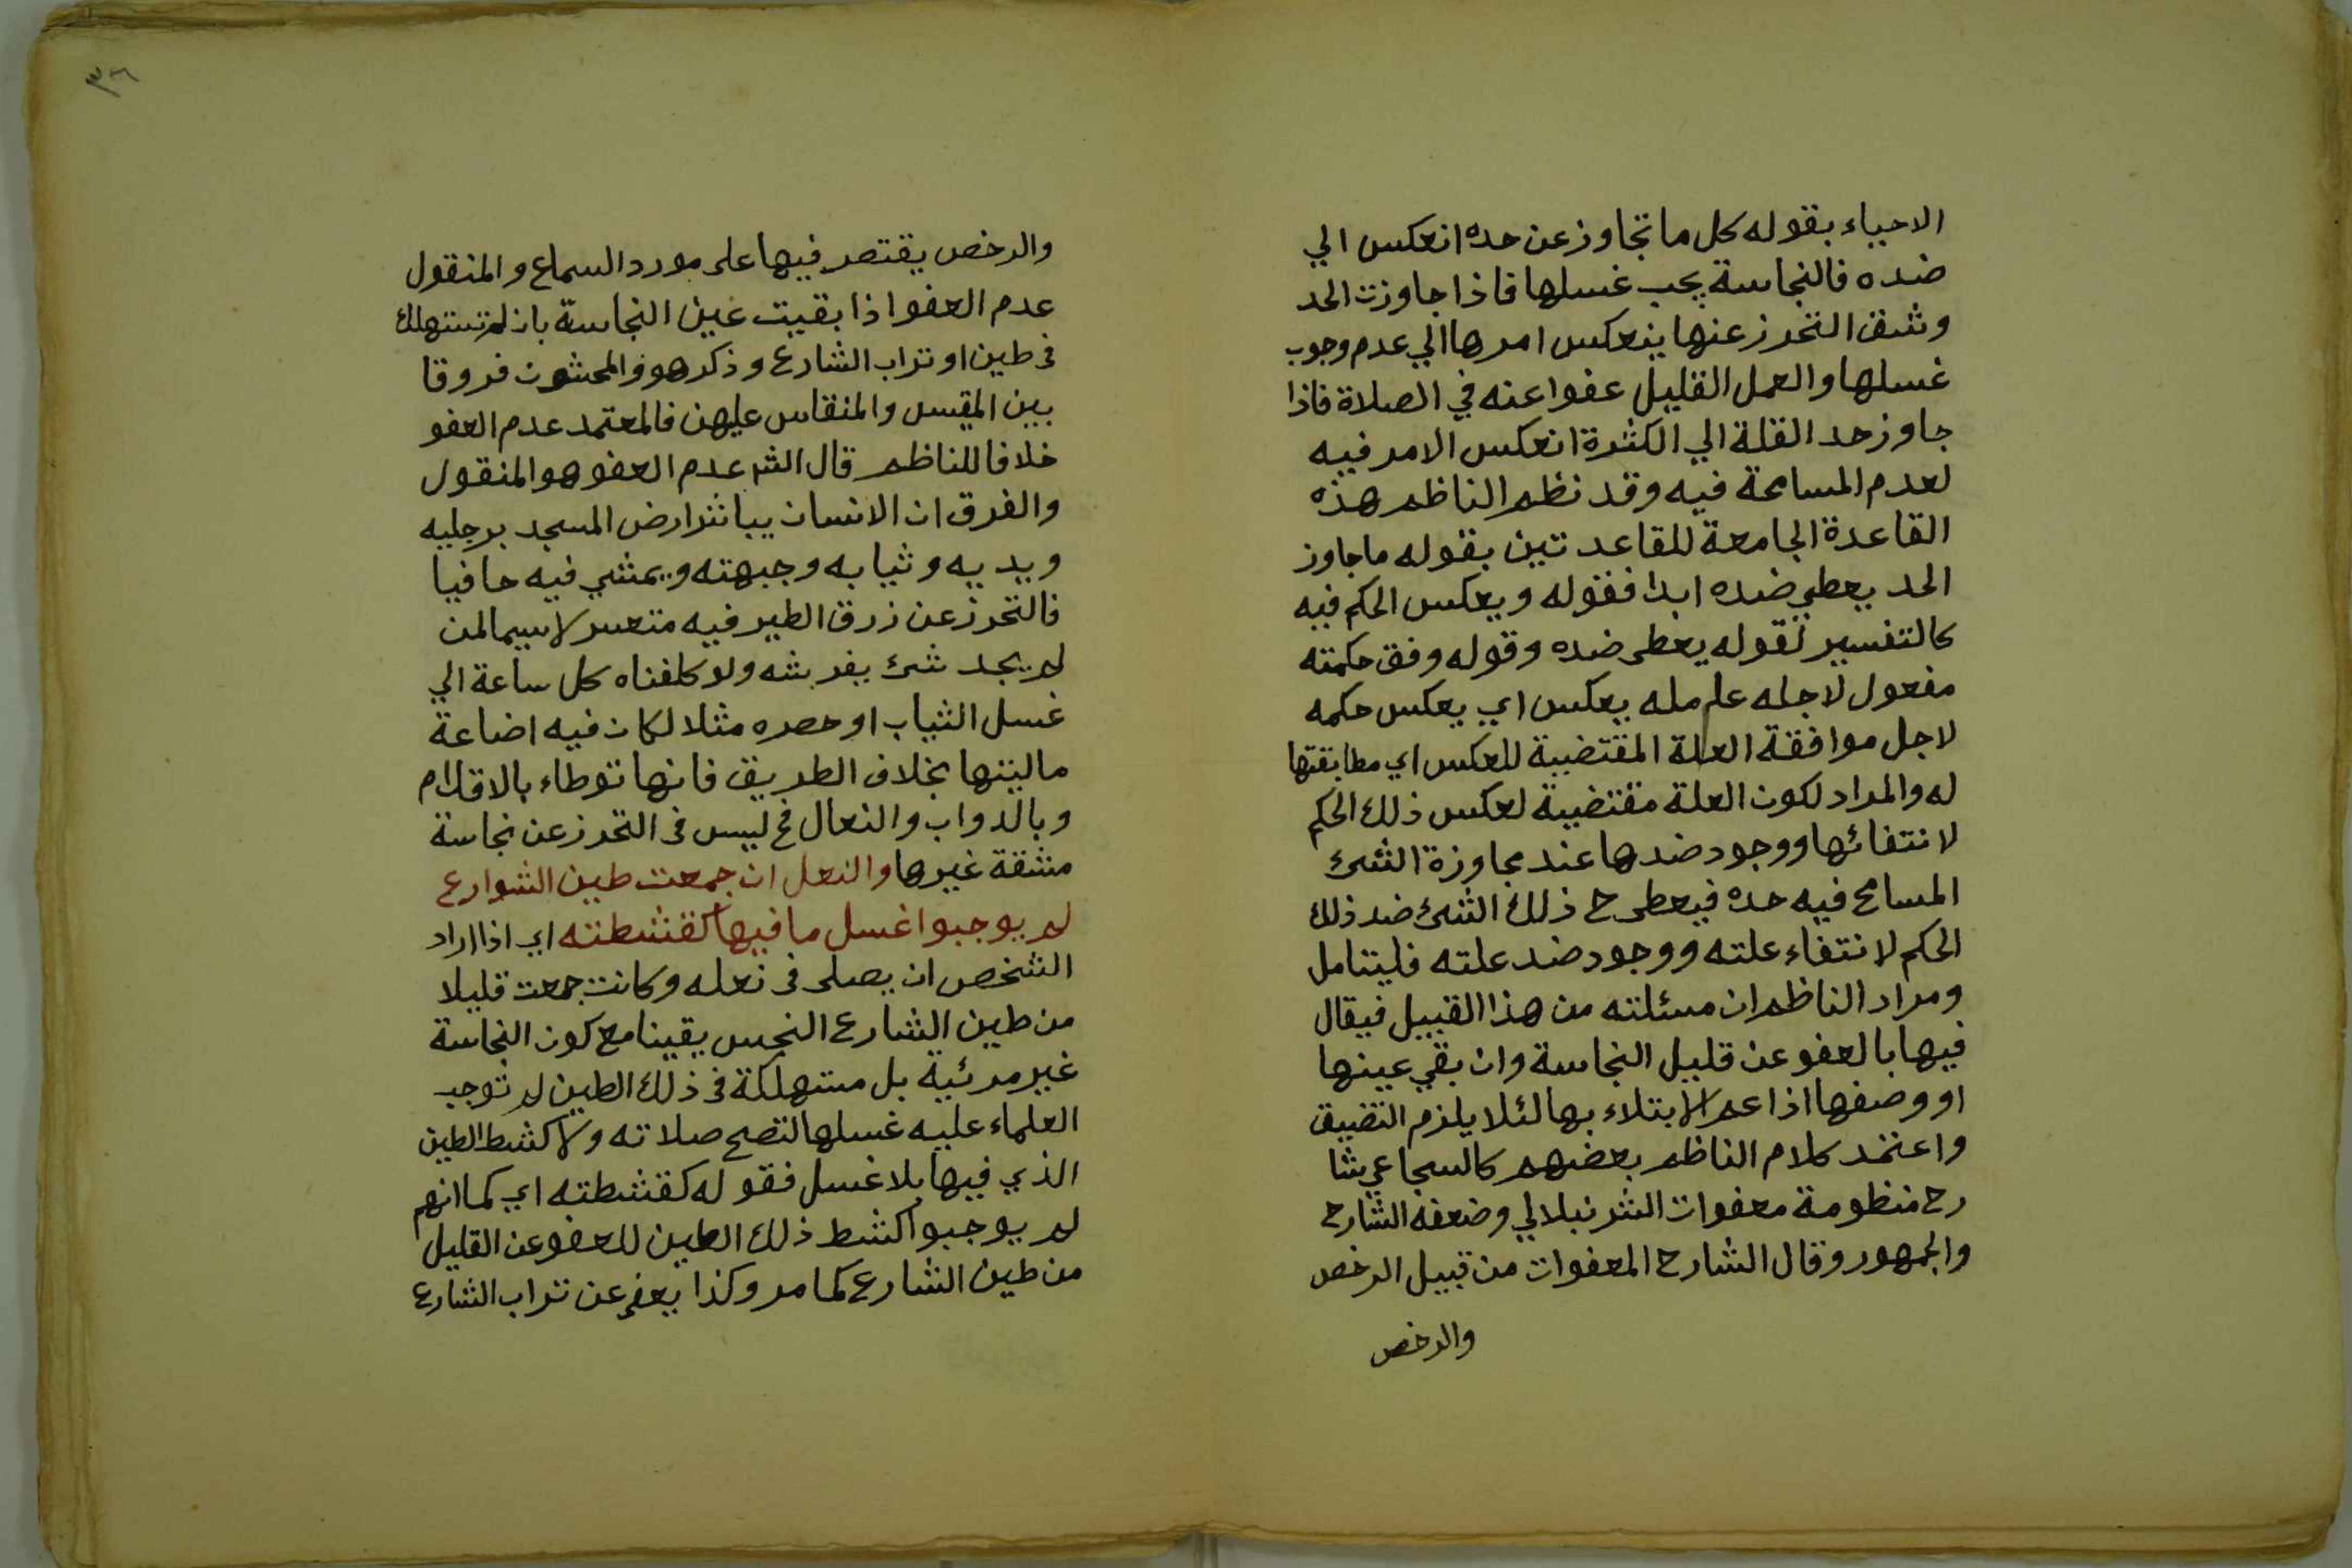 الاحياء بقوله كل ما تجاوز عن حده انعكس الي
ضده فالنجاسة يجب غسلها فاذا جاوزت الحد
وشق التحرز عنها ينعكس امرها الي عدم وجوب
غسلها والعمل القليل عفوا عنه في الصلاة فاذا
جاوز حد القلة الي الكثرة انعكس الامر فيه
لعدم المسامحة فيه وقد نظم الناظم هذه
القاعدة الجامعة للقاعدتين بقوله ما جاوز
الحد يعطي ضده ابدا فقوله ويعكس الحكم فيه
كالتفسير لقوله يعطى ضده وقوله وفق حكمته
مفعول لاجله عامله يعكس اي يعكس حكمه
لاجل موافقة العلة المقتضية للعكس اي مطابقتها
له والمراد لكون العلة مقتضية لعكس ذلك الحكم
لانتفائها ووجود ضدها عند مجاوزة الشئ
المسامح فيه حده فيعطى ح ذلك الشئ ضد ذلك
الحكم لانتفاء علته ووجود ضد علته فليتامل
ومراد الناظم ان مسئلته من هذا القبيل فيقال
فيها بالعفو عن قليل النجاسة وان بقي عينها
او وصفها اذا عم الابتلاء بها لئلا يلزم التضييق
واعتمد كلام الناظم بعضهم كالسجاعي شا
رح منظومة معفوات الشرنبلالي وضعفه الشارح
والجمهور وقال الشارح المعفوات من قبيل الرخص
والرخص
٣٦
والرخص يقتصر فيها على مورد السماع والمنقول
عدم العفو اذا بقيت عين النجاسة بان لم تستهلك
فى طين او تراب الشارع وذكر هو والمحشون فروقا
بين المقيس والمنقاس عليهن فالمعتمد عدم العفو
خلافا للناظم قال الشر عدم العفو هو المنقول
والفرق ان الانسان يباشر ارض المسجد برجليه
ويديه وثيابه وجبهته ويمشي فيه حافيا
فالتحرز عن زرق الطير فيه متعسر لاسيما لمن
لم يجد شئ يفرشه ولو كلفناه كل ساعة الي
غسل الثياب او حصره مثلا لكان فيه اضاعة
ماليتها بخلاف الطريق فانها توطاء بالاقدام
وبالدواب والنعال فح ليس فى التحرز عن نجاسة
مشقة غيرها والنعل ان جمعت طين الشوارع
لم يوجبوا غسل ما فيها كقشطته اي اذا اراد
الشخص ان يصلى فى نعله وكانت جمعت قليلا
من طين الشارع النجس يقينا مع كون النجاسة
غير مرئية بل مستهلكة فى ذلك الطين لم توجب
العلماء عليه غسلها لتصح صلاته ولا كشط الطين
الذي فيها بلا غسل فقوله كقشطته اي كما انهم
لم يوجبوا كشط ذلك الطين للعفو عن القليل
من طين الشارع كما مر وكذا يعفى عن تراب الشارع